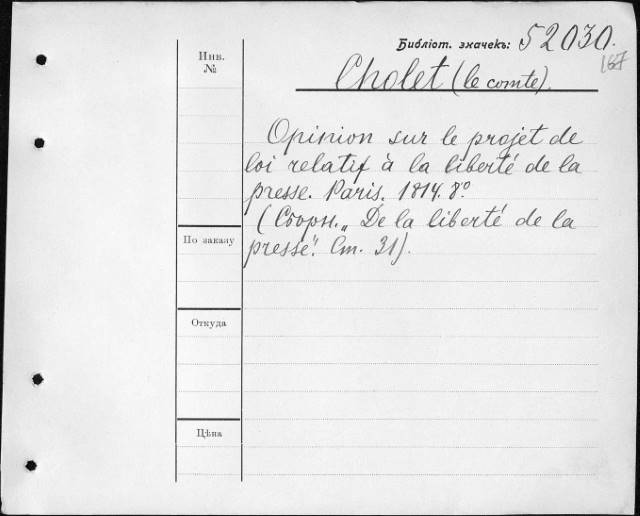 Библіот. значекъ: 52030.
167
Инв.
№
Cholet (le comte).
Opinion sur le projet de
loi relatif à la liberté de la
presse. Paris. 1814. 8º.
(Сборн. „De la liberté de la
presse". Ст. 31).
По заказу
Откуда
Цѣна